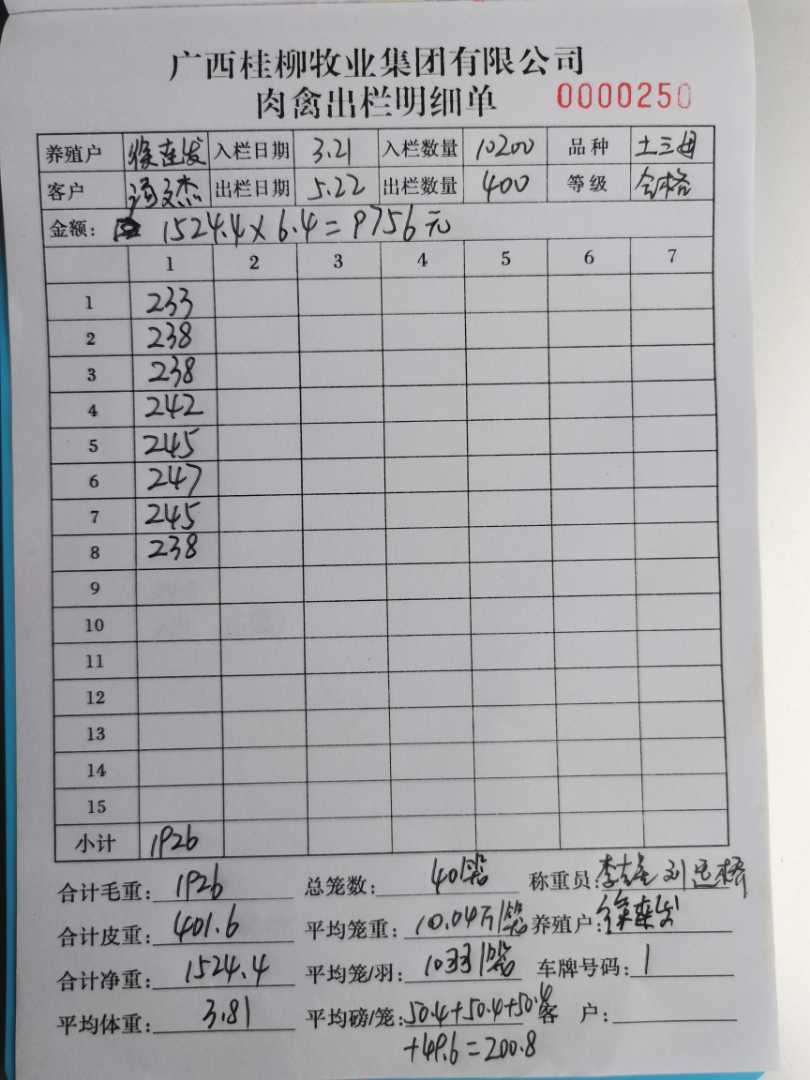 广西桂柳牧业集团有限公司
肉禽出栏明细单 0000250
养殖户 徐连发 入栏日期 3.21 入栏数量 10200 品种 土三母
客户 汤文杰 出栏日期 5.22 出栏数量 400 等级 合格
金额: 1524.4×6.4=9756元
1 2 3 4 5 6 7
1 233
2 238
3 238
4 242
5 245
6 247
7 245
8 238
9
10
11
12
13
14
15
小计 1926
合计毛重: 1926 总笼数: 40笼 称重员: 刘
合计皮重: 401.6 平均笼重: 10.04斤/笼 养殖户: 徐连发
合计净重: 1524.4 平均笼/羽: 10羽/笼 车牌号码: 1
平均体重: 3.81 平均磅/笼: 50.4+50.4+50.4 客 户:
+49.6=200.8